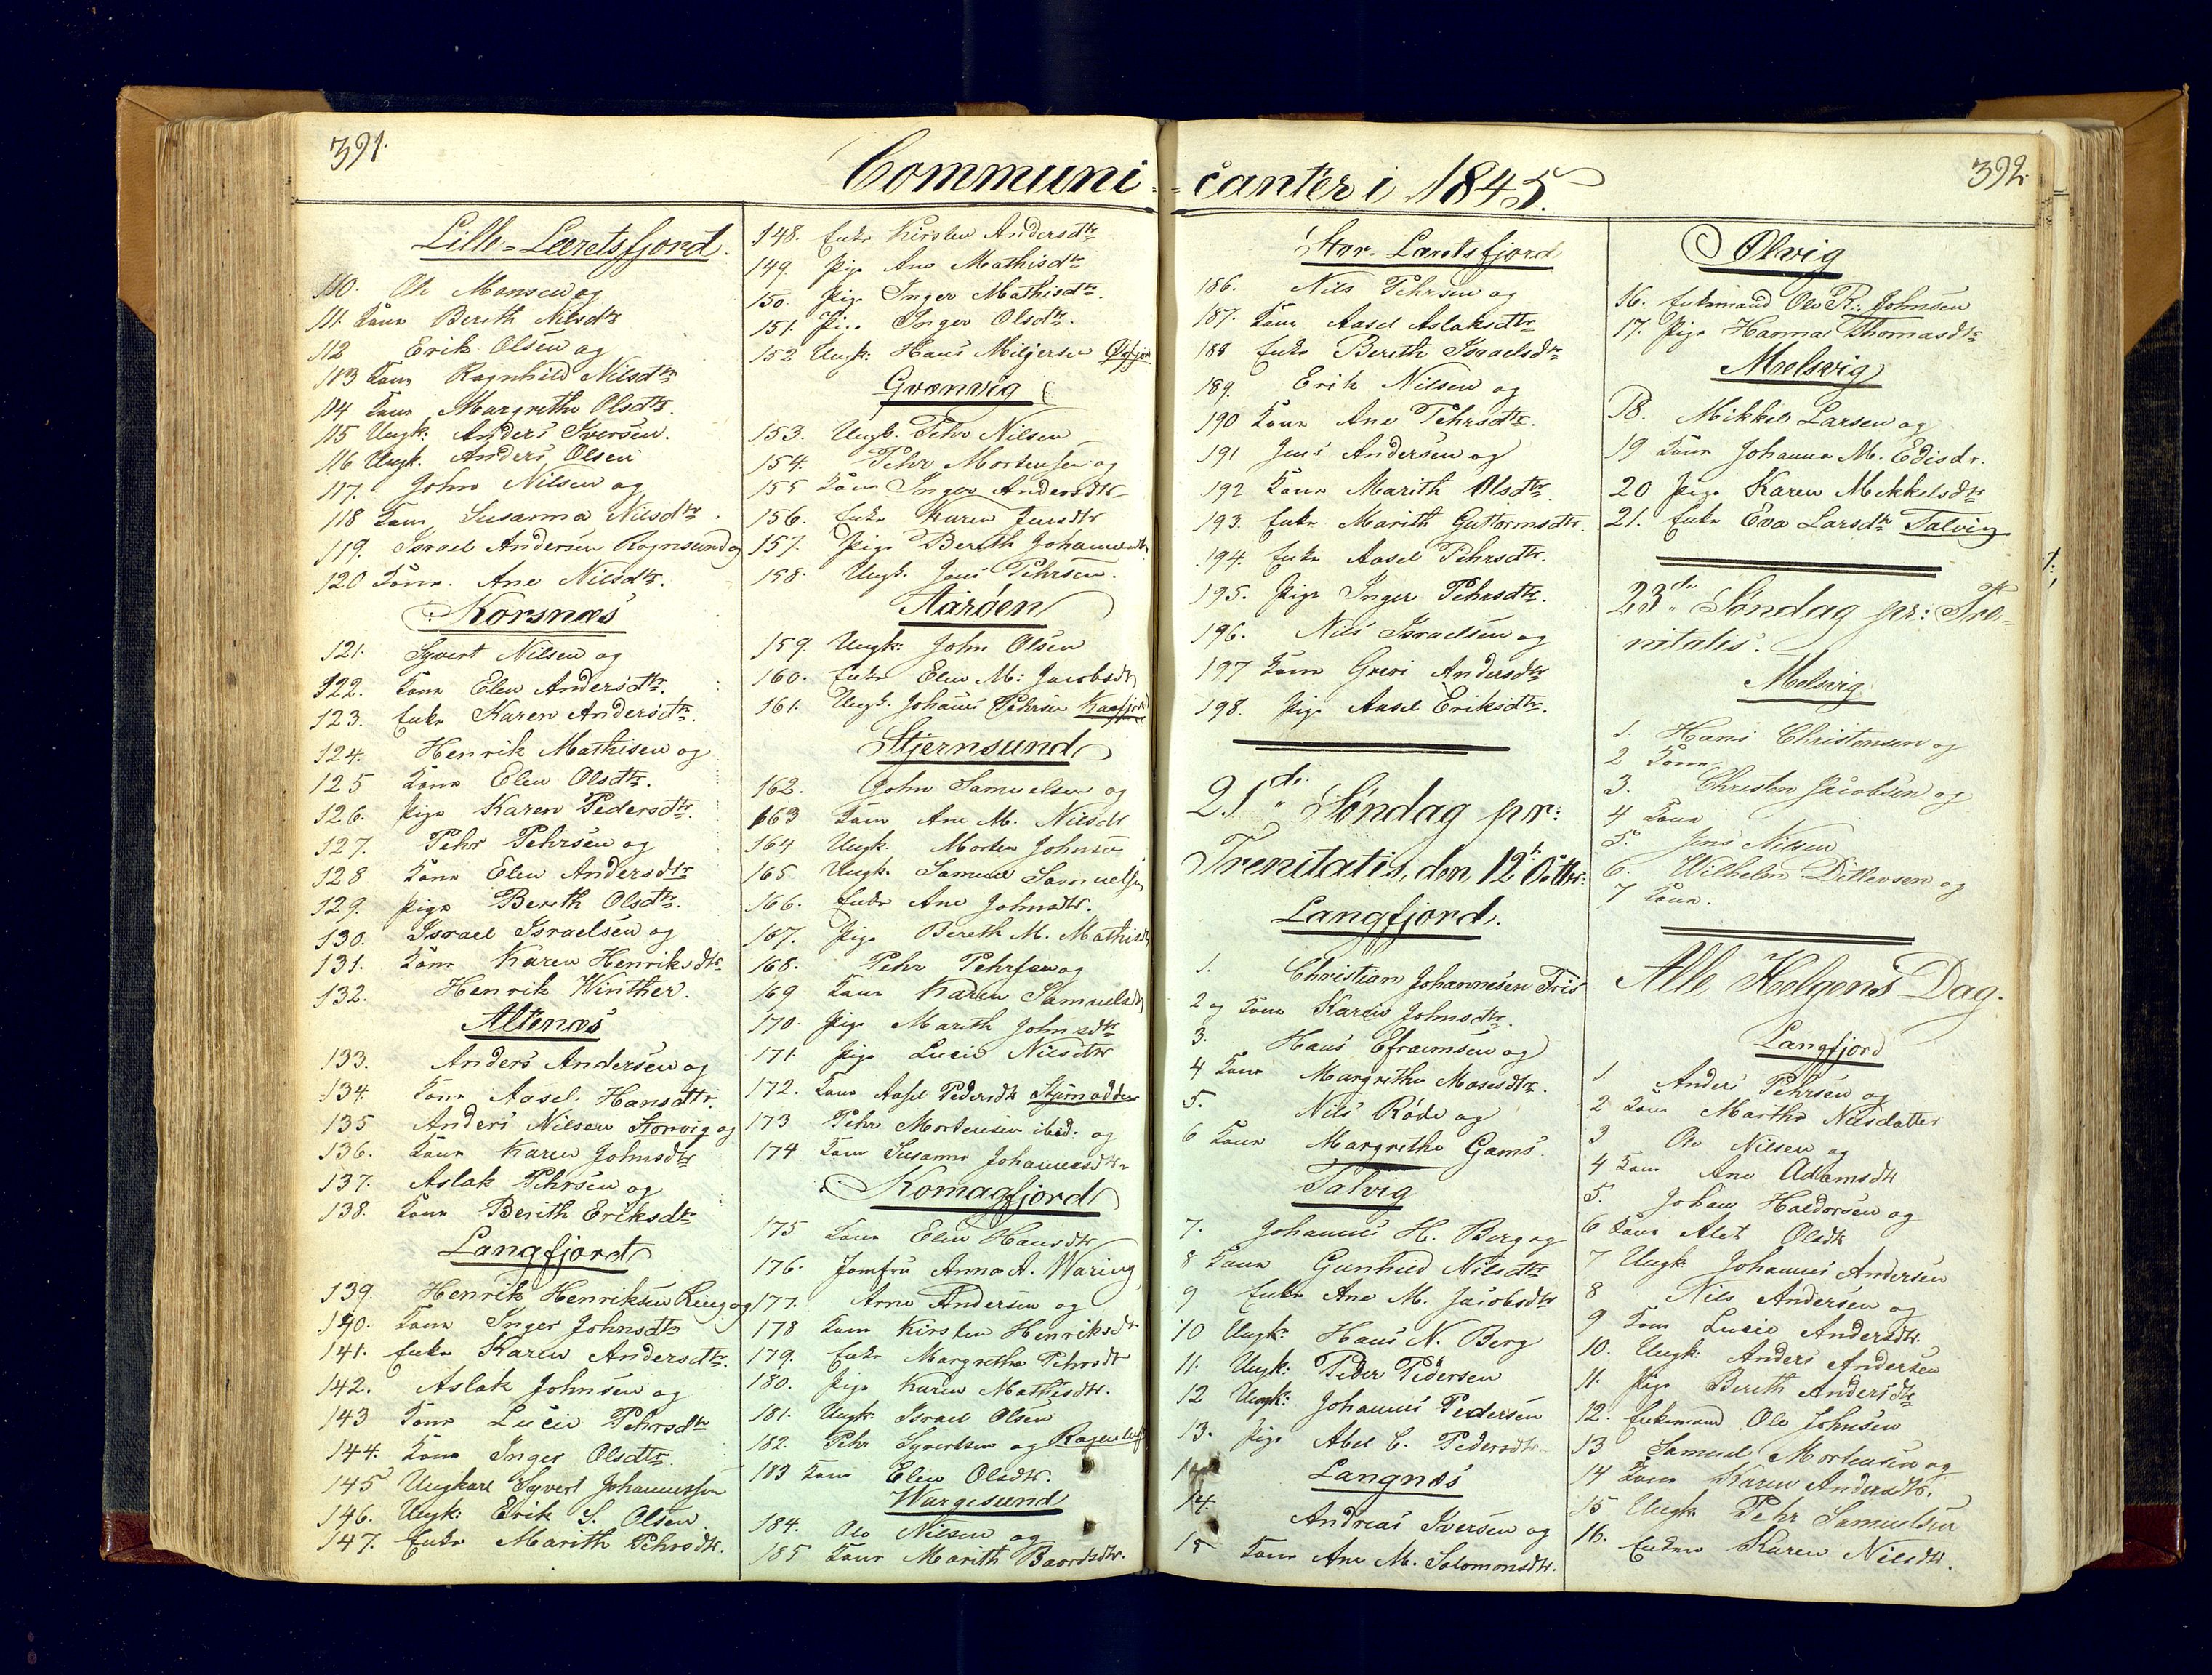 391.
Communi-
Lille-Lerretsfjord.
110. Ole Monsen og
111. Kone Berith Nilsdtr
112 Erik Olsen og
113 Kone Ragnhild Nilsdtr
114 Kone Margrethe Olsdtr.
115 Ungk: Anders Iversen.
116 Ungk. Anders Olsen
117. John Nilsen og
118 Kone Susanna Nilsdtr.
119. Israel Andersen Rognsund og
120 Kone. Ane Nilsdtr.
Korsnæs
121. Syvert Nilsen og
122. Kone Elen Andersdtr.
123. Enke Karen Andersdtr.
124. Henrik Mathisen og
125 Kone Elen Olsdtr.
126. Pige Karen Pedersdtr.
127. Pehr Pehrsen og
128 Kone Elen Andersdtr
129. Pige Berith Olsdtr.
130. Israel Israelsen og
131. Kone Karen Henriksdtr
132. Henrik Winther.
Altenæs
133. Anders Andersen og
134. Kone Aasel Hansdtr.
135 Anders Nilsen Storvig og
136. Kone Karen Johnsdtr
137. Aslak Pehrsen og
138. Kone Berith Eriksdtr
Langfjord
139. Henrik Henriksen Ring og
140. Kone Inger Johnsdtr
141. Enke Karen Andersdtr.
142. Aslak Johnsen og
143 Kone Lucie Pehrsdtr
144. Kone Inger Olsdtr.
145 Ungkarl Syvert Johannessen
146. Ungk: Erik S. Olsen
147. Enke Marith Pehrsdtr.
148. Enke Kirsten Andersdtr
149. Pige Ane Mathisdtr
150. Pige Inger Mathisdtr.
151. Pige Inger Olsdtr.
152 Ungk: Hans Miljersen
Qvænvig
153. Ungk. Pehr Nilsen
154. Pehr Mortensen og
155 Kone Inger Andersdtr
156. Enke Karen Jensdtr
157. Pige Berith Johannesdtr
158. Ungk. Jens Pehrsen.
Aarøen
159 Ungk: John Olsen
160. Enke Elen M: Jacobsdtr
161. Ungk. Johannes Pehrsen Kaafjord
Stjernsund
162. John Samuelsen og
163 Kone Ane M. Nilsdtr
164 Ungk. Morten Johnsen
165 Ungk. Samuel Samuelsen
166. Enke Ane Johnsdtr.
167. Pige Bereth M. Mathisdtr
168. Pehr Pehrsen og
169 Kone Karen Samuelsdtr
170. Pige Marith Johnsdtr
171. Pige Lucie Nilsdtr
172. Kone Aasel Pedersdtr Stjernodden
173 Pehr Mortensen ibid: og
174 Kone Susanne Johannesdtr
Komagfjord
175 Kone Elen Hansdtr
176. Jomfru Anna A. Waring
177. Arne Andersen og
178 Kone Kirsten Henriksdtr
179. Enke Margrethe Pehrsdtr
180. Pige Karen Mathisdtr.
181. Ungk. Israel Olsen
182. Pehr Syvertsen og
183 Kone Elen Olsdtr.
Wargesund
184. Ole Nilsen og
185 Kone Marith Baordsdtr.
392.
canter i 1845.
Stor-Lerretsfjord
186. Nils Pehrsen og
187. Kone Aasel Aslaksdtr
188 Enke Berith Israelsdtr
189. Erik Nilsen og
190 Kone Ane Pehrsdtr.
191 Jens Andersen og
192 Kone Marith Olsdtr
193. Enke Marith Guttormsdtr.
194. Enke Aasel Pehrsdtr.
195. Pige Inger Pehrsdtr.
196. Nils Israelsen og
197 Kone Greri Andersdtr
198. Pige Aasel Eriksdtr.
21de Søndag pr:
Trenitatis, den 12te Octbr:
Langfjord.
1. Christian Johannesen Friis
2 og Kone Karen Johnsdtr.
3. Hans Efraimsen og
4 Kone Margrethe Mosesdtr.
5. Nils Røde og
6 Kone Margrethe Gams.
Talvig
7. Johannes H. Berg og
8 Kone Gunhild Nilsdtr
9 Enke Ane M. Jacobsdtr
10 Ungk: Hans N. Berg
11. Ungk: Peder Pedersen
12 Ungk: Johannes Pedersen
13. Pige Abel C. Pedersdtr
Langnæs
14. Andreas Iversen og
15 Kone Ane M. Solomonsdtr.
Olvig
16. Enkemand Ole R: Johnsen
17. Pige Hanna Thomasdtr
Melsvig
18. Mikkel Larsen og
19 Kone Johanna M. Edisdr.
20 Pige Karen Mekkelsdtr
21. Enke Eva Larsdtr Talvig
23de Søndag pr: Tre-
nitatis.
Melsvig
1. Hans Christensen og
2 Kone
3. Christen Jacobsen og
4 Kone
5. Jens Nilsen
6. Wilhelm Ditlevsen og
7 Kone.
Alle Helgens Dag.
Langfjord
1 Anders Pehrsen og
2 Kone Marthe Nilsdatter
3 Ole Nilsen og
4 Kone Ane Adamsdtr
5. Johan Haldorsen og
6 Kone Alet Olsdtr
7 Ungk. Johannes Andersen
8 Nils Andersen og
9 Kone Lucie Andersdtr.
10. Ungk: Anders Andersen
11. Pige Bereth Andersdtr
12. Enkemand Ole Johnsen
13 Samuel Mortensen og
14 Kone Karen Andersdtr.
15 Ungk. Pehr Samuelsen
16. Enken Karen Nilsdtr.